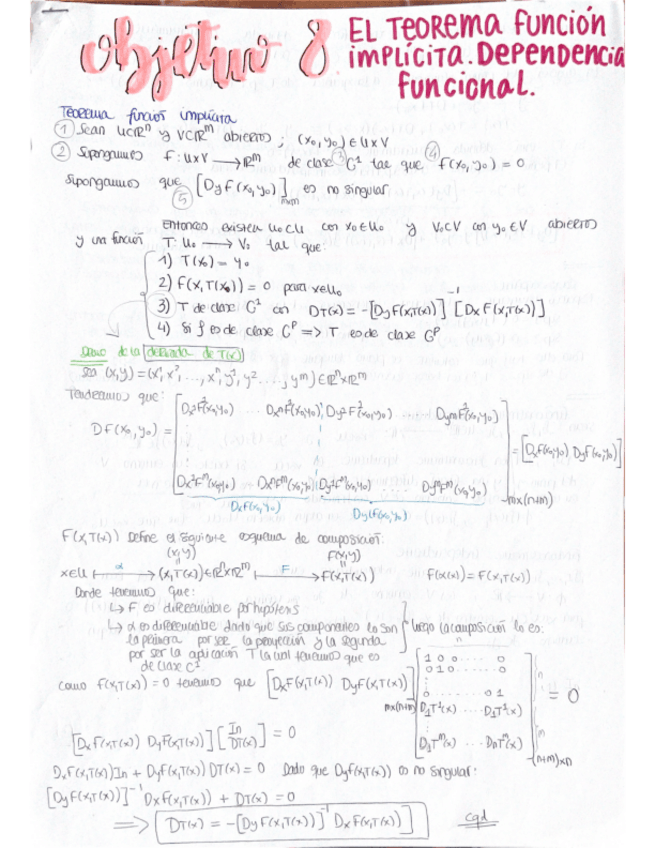 Objetivo 8. EL TEOREMA FUNCIÓN
IMPLÍCITA. DEPENDENCIA
FUNCIONAL.
Teorema función implícita
① Sean U⊂ℝⁿ y V⊂ℝᵐ abiertos : (x₀,y₀) ∈ U×V
② Supongamos f: U×V → ℝᵐ de clase ③ C¹ tal que ④ f(x₀,y₀) = 0
Supongamos que [Dy F(x₀,y₀)]m×m es no singular
⑤
Entonces existen U₀⊂U con x₀∈U₀ y V₀⊂V con y₀∈V abiertos
y una función T: U₀ → V₀ tal que:
1) T(x₀) = y₀
2) F(x,T(x)) = 0 para x∈U₀
3) T de clase C¹ con DT(x) = -[Dy F(x,T(x))]⁻¹ [Dx F(x,T(x))]
4) Si f es de clase Cᵖ => T es de clase Cᵖ
Demo de la derivada de T(x)
Sea (x,y) = (x¹,x²,...,xⁿ,y¹,y²...,yᵐ) ∈ ℝⁿ×ℝᵐ
Tendremos que:
DF(x₀,y₀) = = [DxF(x₀,y₀) DyF(x₀,y₀)]
m×(n+m)
DxF(x₀,y₀) Dy(F(x₀,y₀)
F(x,T(x)) define el siguiente esquema de composición:
(x,y) F(x,y)
x∈U ↦ α (x,T(x))∈ℝⁿ×ℝᵐ ↦ F F(x,T(x)) F(α(x)) = F(x,T(x))
Donde tenemos que:
↳ F es diferenciable por hipótesis
↳ α es diferenciable dado que sus componentes lo son luego la composición lo es:
la primera por ser la proyección y la segunda
por ser la aplicación T la cual tenemos que es
de clase C¹
como f(x,T(x)) = 0 tenemos que [DxF(x,T(x)) DyF(x,T(x))] m×(n+m)
1 0 0 ... 0
0 1 0 ... 0
0 ... 0 1
D₁T¹(x) ... DnT¹(x)
D₁Tᵐ(x) ... DnTᵐ(x)
(n+m)×n
= 0
[DxF(x,T(x)) DyF(x,T(x))] [In DT(x)] = 0
DxF(x,T(x)) In + DyF(x,T(x)) DT(x) = 0 Dado que DyF(x,T(x)) es no singular:
[DyF(x,T(x))]⁻¹ DxF(x,T(x)) + DT(x) = 0
=> DT(x) = -[DyF(x,T(x))]⁻¹ DxF(x,T(x))] cqd